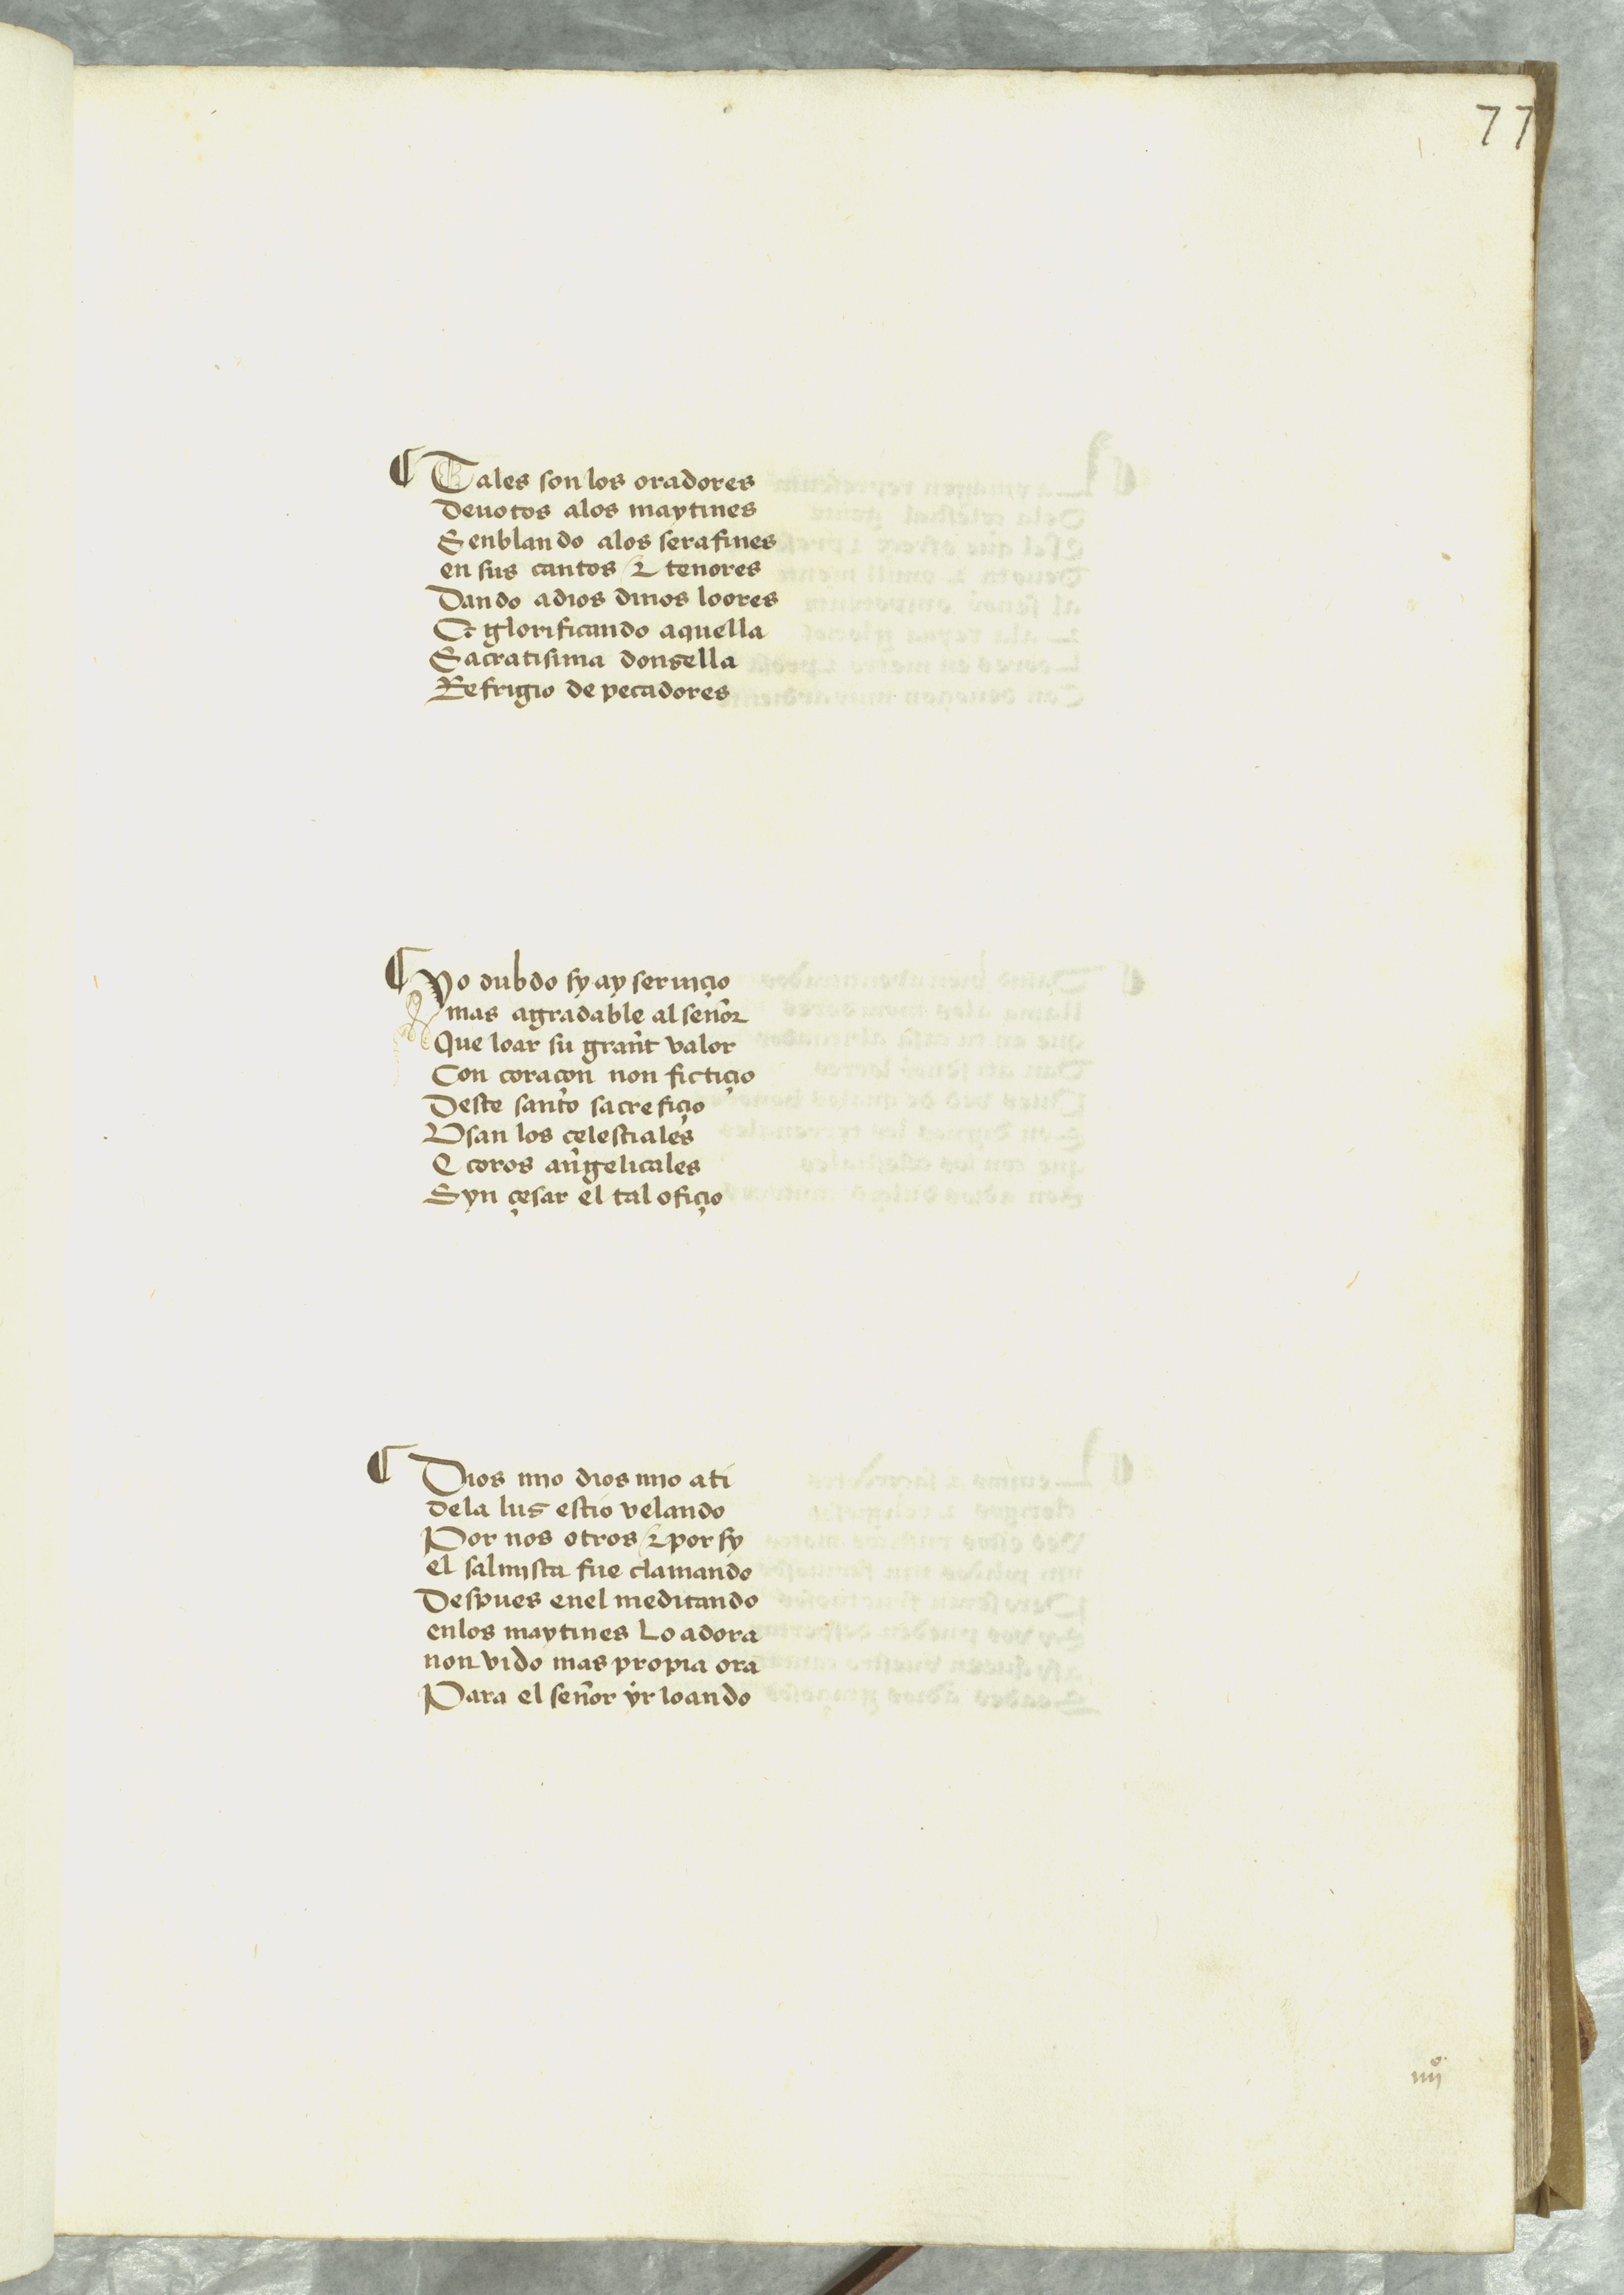 77
¶ Tales son los oradores
deuotos alos maytines
Senblando alos serafines
en sus cantos ⁊ tenores
Dando adios dinos loores
Et glorificando aquella
Sacratisima donsella
Refrigio de pecadores
¶ Yo dubdo sy ay seruiçio
mas agradable al señor
Que loar su grant valor
Con coraçon non fictiçio
Deste santo sacrefiçio
Vsan los çelestiales
E coros angelicales
Syn çesar el tal ofiçio
¶ Dios mio dios mio ati
dela lus estio velando
Por nos otros ⁊ por sy
el salmista fue clamando
Despues enel meditando
enlos maytines Lo adora
non vido mas propia ora
Para el señor yr loando
iiijº